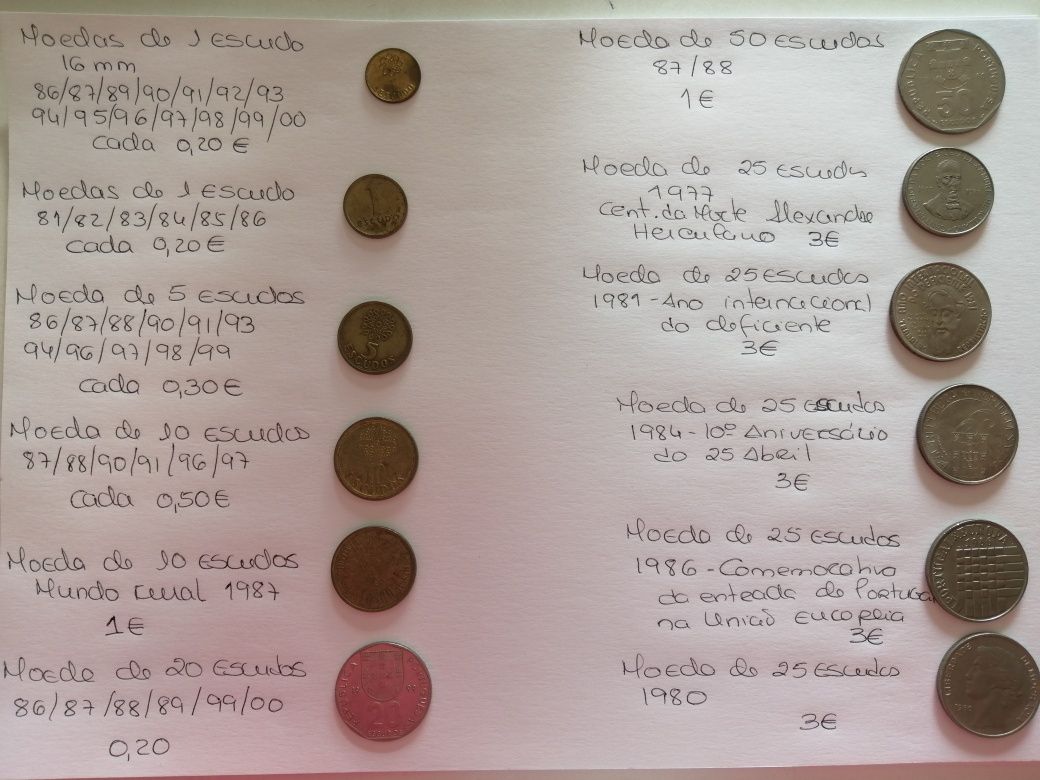 Moedas de 1 Escudo
16 mm
86/87/89/90/91/92/93
94/95/96/97/98/99/00
cada 0,20 €
Moedas de 1 Escudo
81/82/83/84/85/86
cada 0,20 €
Moeda de 5 Escudos
86/87/88/90/91/93
94/96/97/98/99
cada 0,30 €
Moeda de 10 Escudos
87/88/90/91/96/97
cada 0,50 €
Moeda de 10 Escudos
Mundo Rural 1987
1 €
Moeda de 20 Escudos
86/87/88/89/99/00
0,20
Moeda de 50 Escudos
87/88
1 €
Moeda de 25 Escudos
1977
Cent. da Morte Alexandre
Herculano 3€
Moeda de 25 Escudos
1981 - Ano internacional
do deficiente
3€
Moeda de 25 Escudos
1984 - 10º Aniversário
do 25 Abril
3€
Moeda de 25 Escudos
1986 - Comemorativa
da entrada de Portugal
na União Europeia
3€
Moeda de 25 Escudos
1980
3€
1
ESCUDO
5
ESCUDOS
20
50
LIBERDADE
1980